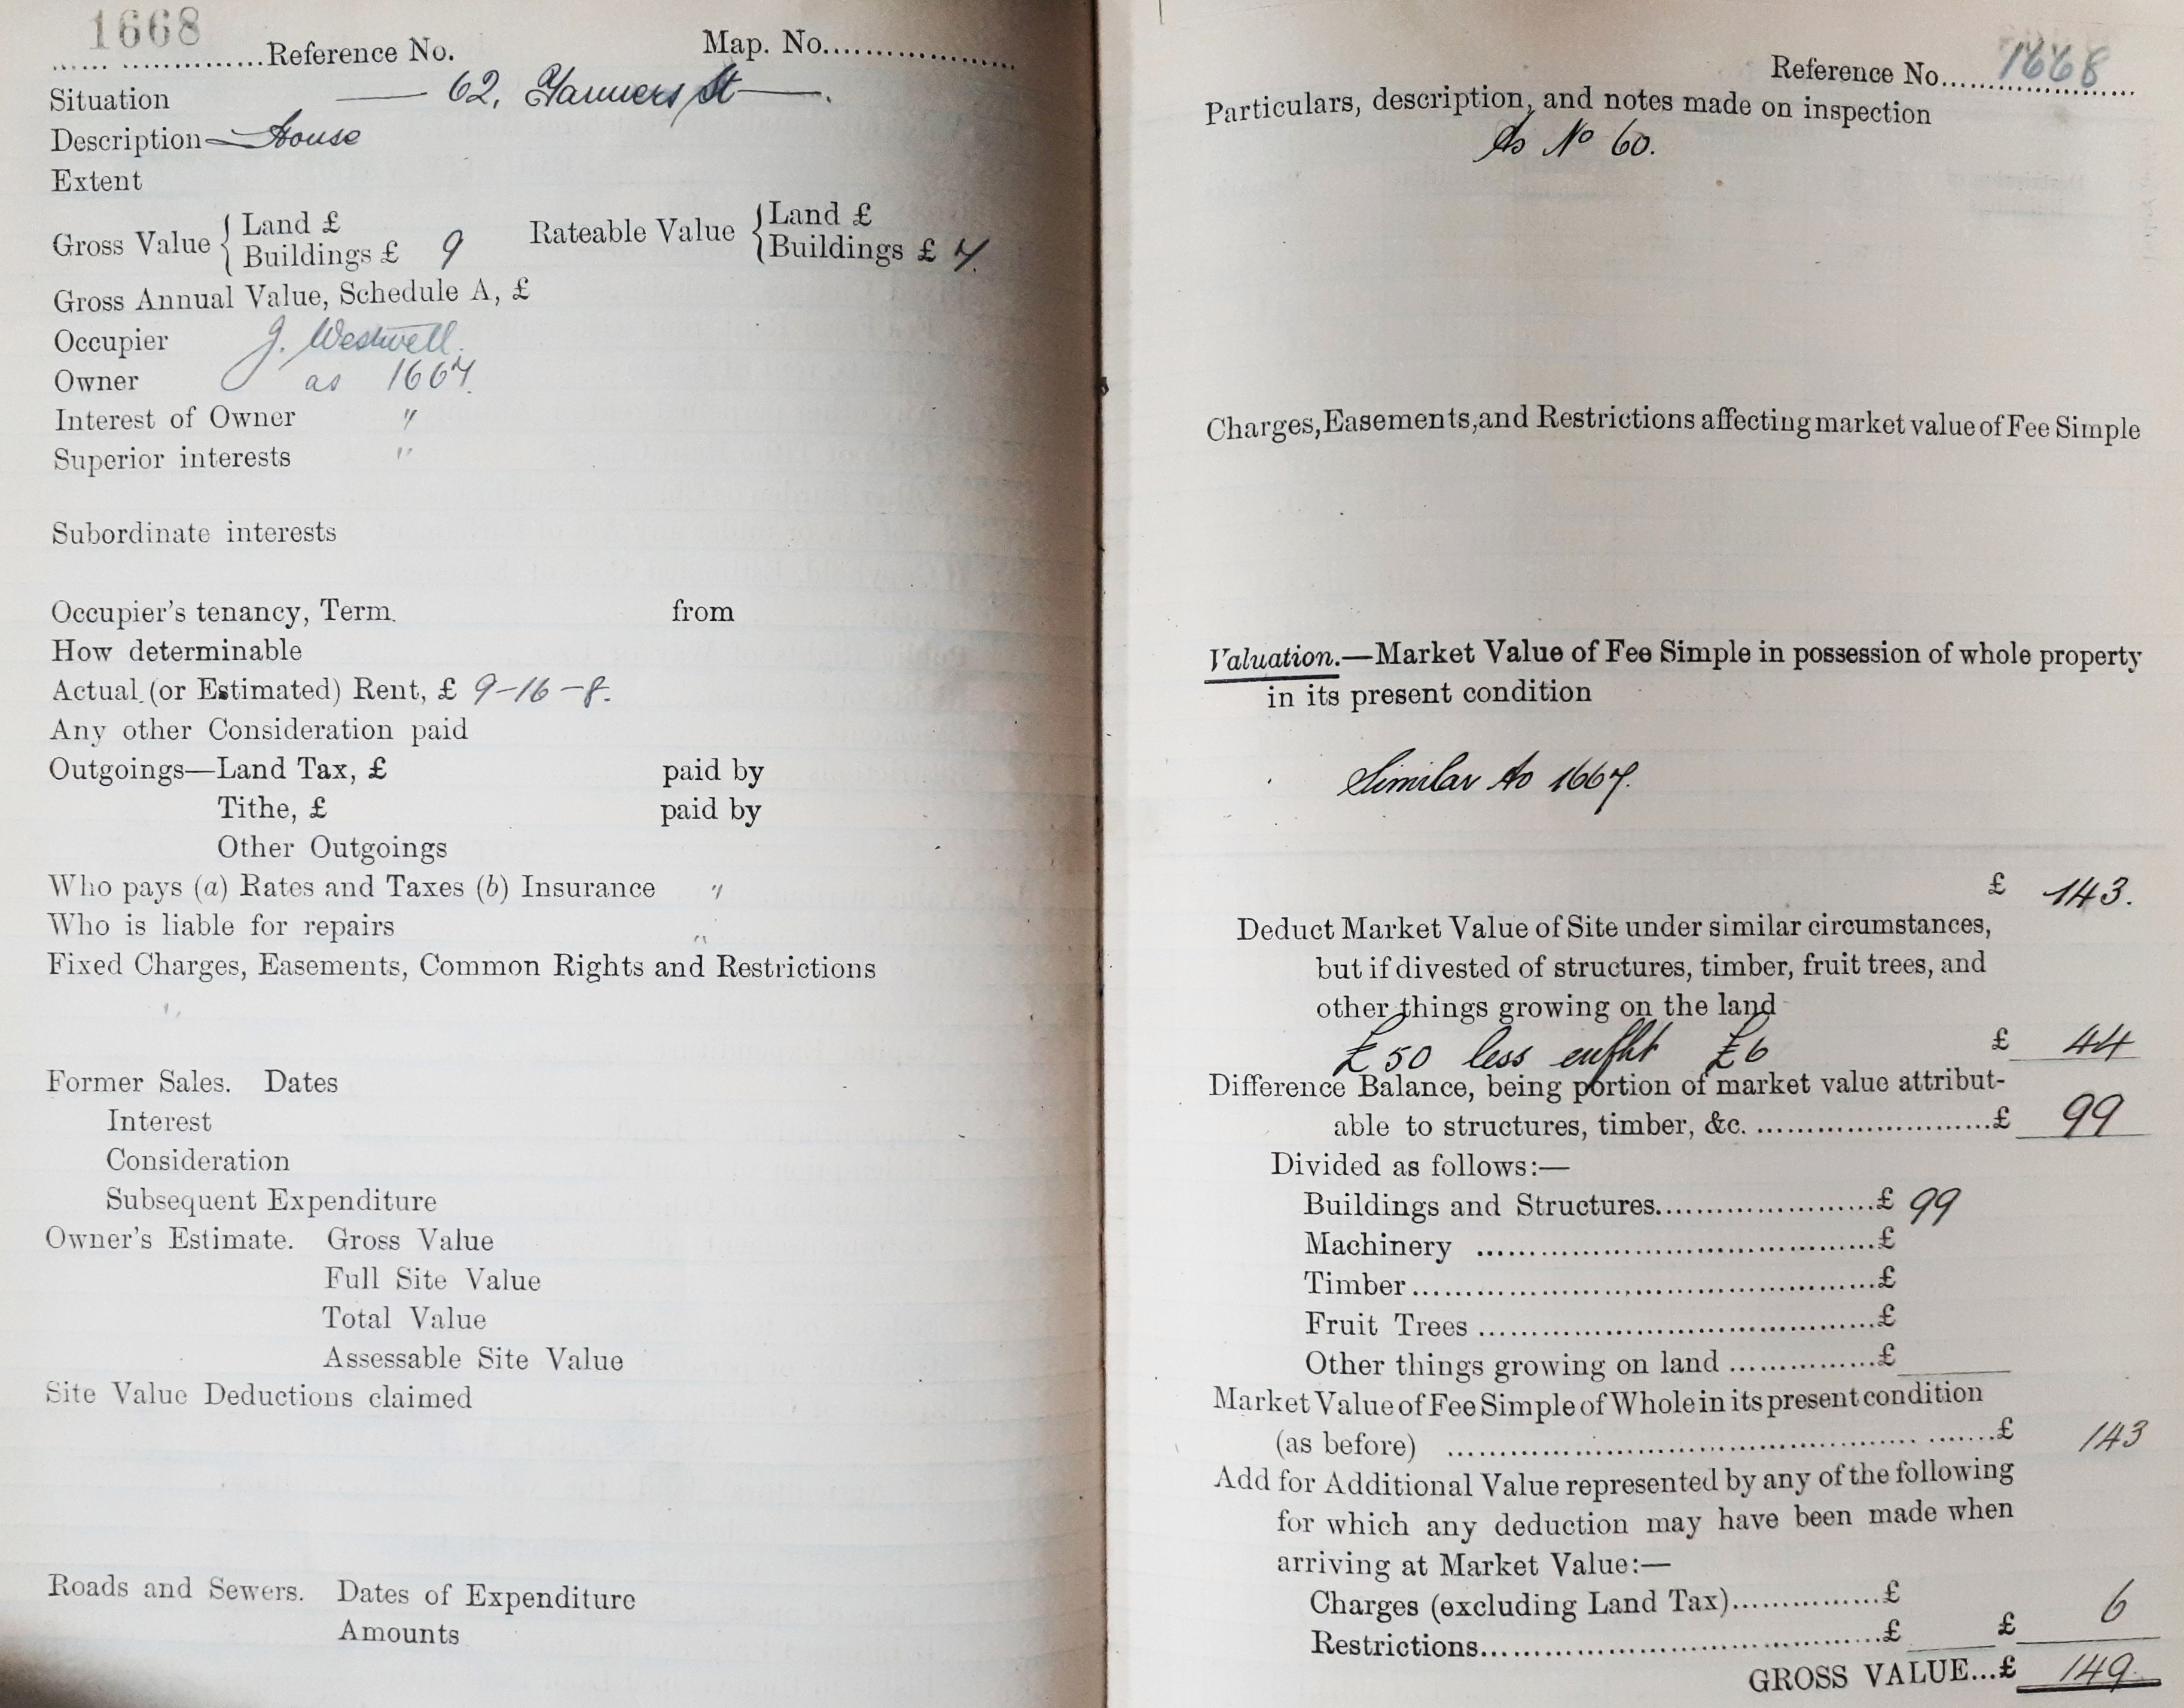 1668
...................Reference No.
Map. No...................
Situation 62, Farmers St
Description House
Extent
Gross Value { Land £
Buildings £ 9
Rateable Value { Land £
Buildings £ 7.
Gross Annual Value, Schedule A, £
Occupier J. Westwell.
Owner as 1667.
Interest of Owner "
Superior interests "
Subordinate interests
Occupier's tenancy, Term. from
How determinable
Actual (or Estimated) Rent, £ 9-16-8.
Any other Consideration paid
Outgoings—Land Tax, £ paid by
Tithe, £ paid by
Other Outgoings
Who pays (a) Rates and Taxes (b) Insurance "
Who is liable for repairs "
Fixed Charges, Easements, Common Rights and Restrictions
"
Former Sales. Dates
Interest
Consideration
Subsequent Expenditure
Owner's Estimate. Gross Value
Full Site Value
Total Value
Assessable Site Value
Site Value Deductions claimed
Roads and Sewers. Dates of Expenditure
Amounts
Reference No.....1668
Particulars, description, and notes made on inspection
As No 60.
Charges, Easements, and Restrictions affecting market value of Fee Simple
Valuation.—Market Value of Fee Simple in possession of whole property
in its present condition
Similar to 1667.
£ 143.
Deduct Market Value of Site under similar circumstances,
but if divested of structures, timber, fruit trees, and
other things growing on the land
£50 less £6 £ 44
Difference Balance, being portion of market value attribut-
able to structures, timber, &c. ..........................£ 99
Divided as follows:—
Buildings and Structures.......................£ 99
Machinery ..........................................£
Timber.................................................£
Fruit Trees ..........................................£
Other things growing on land ................£
Market Value of Fee Simple of Whole in its present condition
(as before) .......................................................£ 143
Add for Additional Value represented by any of the following
for which any deduction may have been made when
arriving at Market Value:—
Charges (excluding Land Tax)................£
Restrictions...........................................£ £ 6
GROSS VALUE...£ 149.